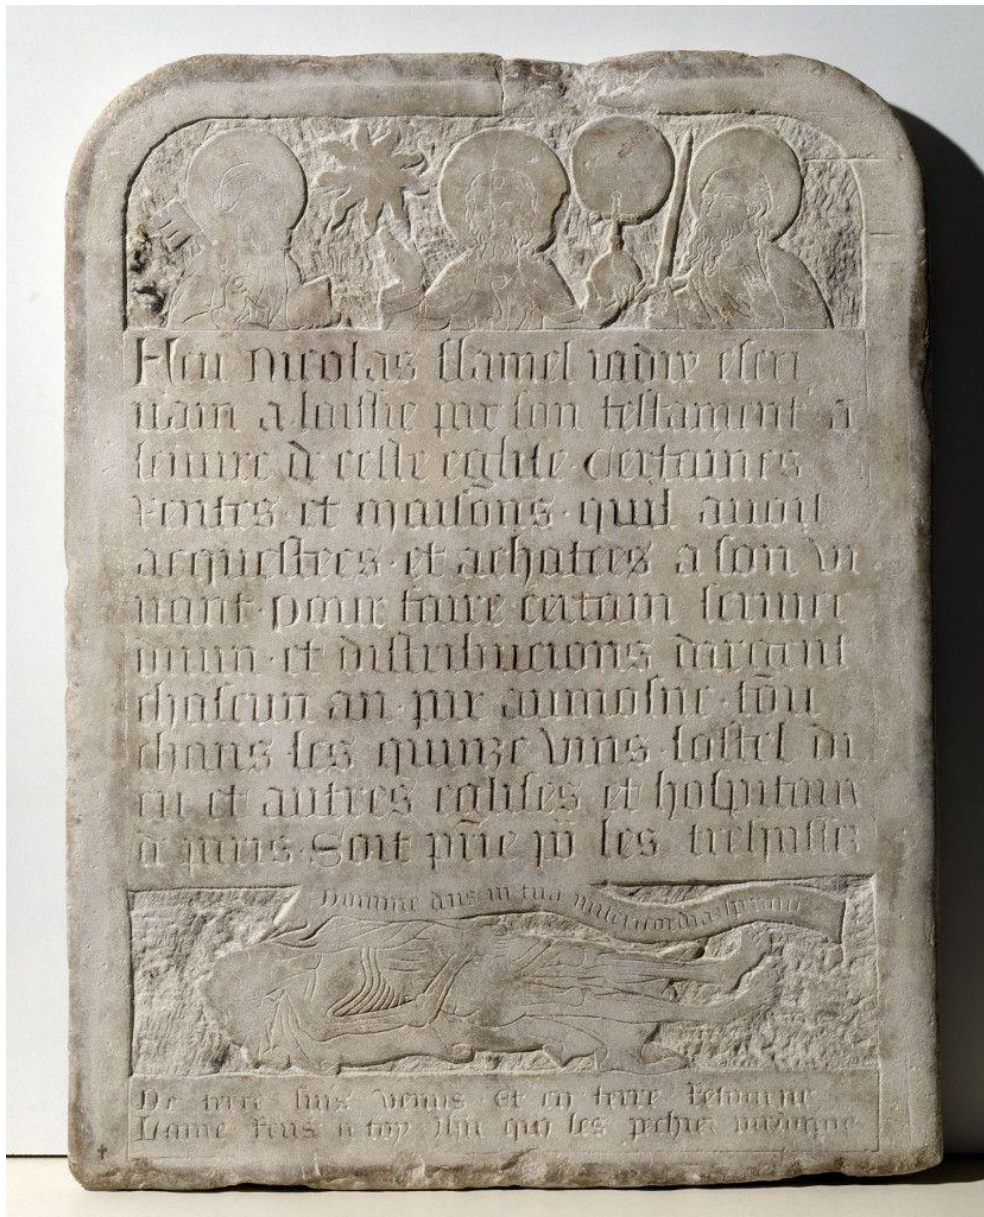 Feu Nicolas flamel iadiz escri
uain a laissie par son testament a
leuure de ceste eglise certaines
rentes et maisons quil auoit
acquestees et achatees a son vi
uant pour faire certain seruice
diuin et distribucions dargent
chascun an par aumosne tou
chans les quinze vins lostel di
eu et autres eglises et hospitaux
de paris Soit prie pour les trespassez
Domine deus in tua misericordia speraui
De terre suis venus et en terre retourne
Lame rens a toy Jhu qui les pechiez pardonne